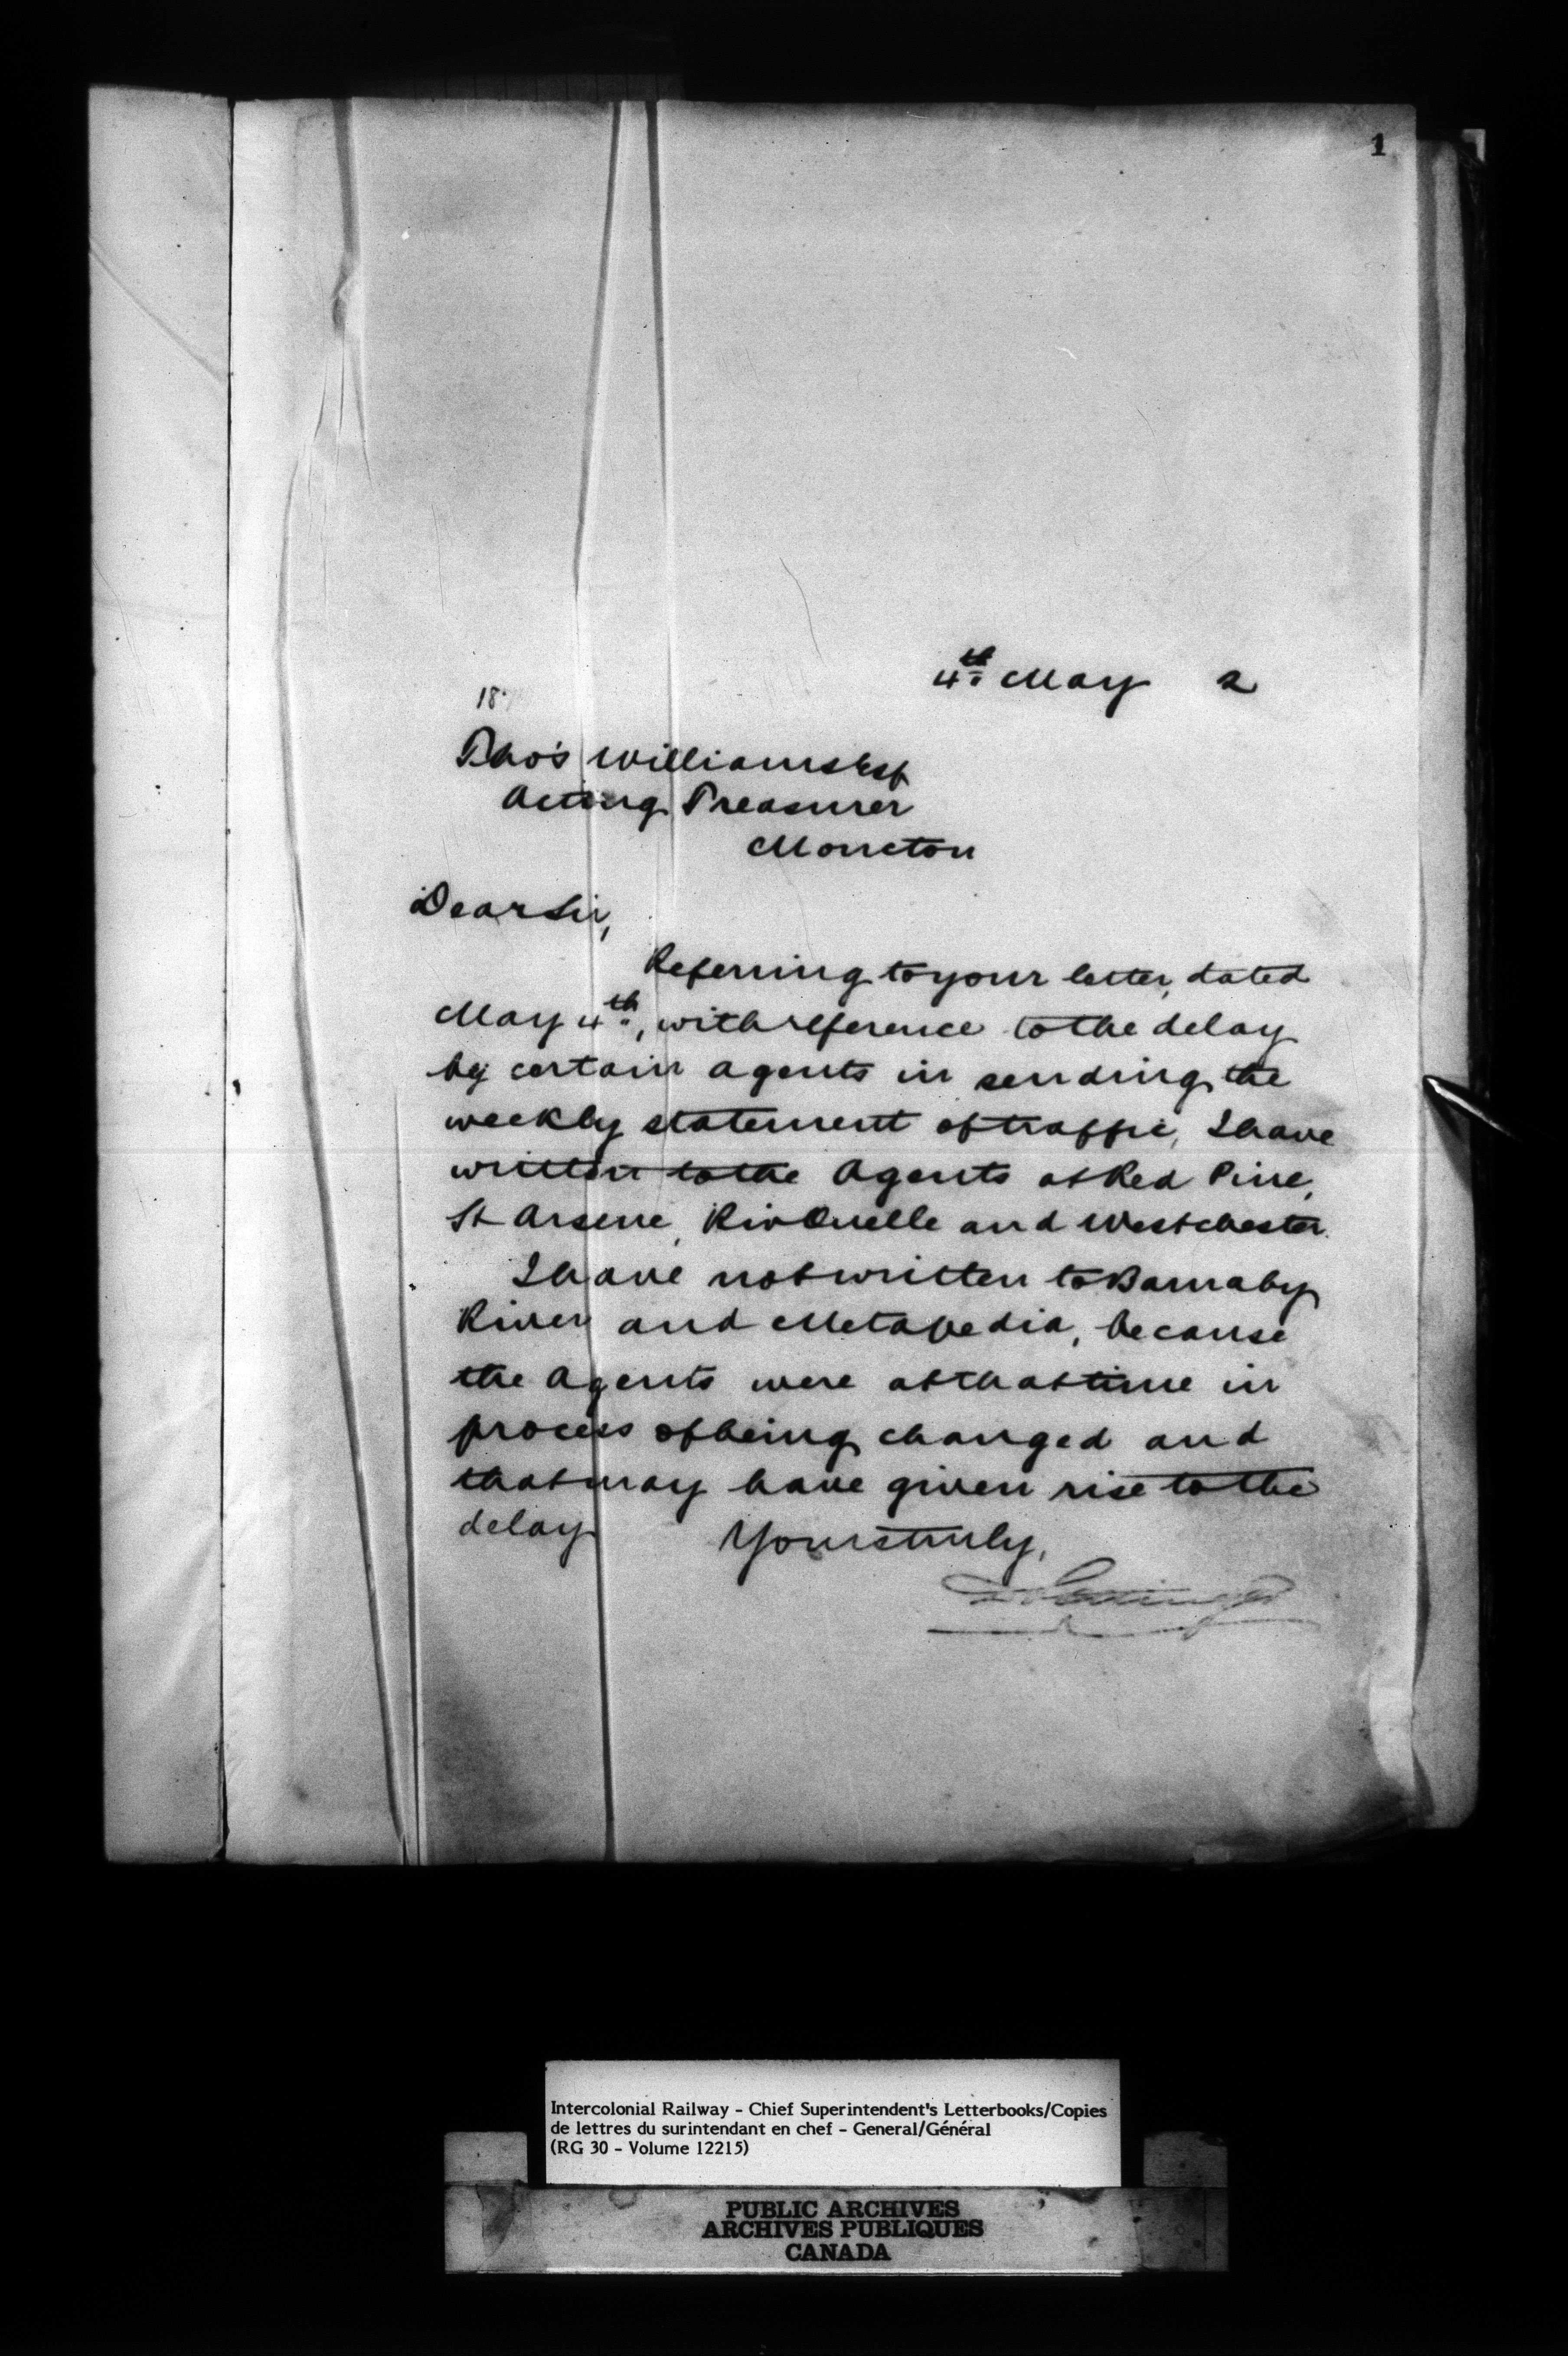 1
4th May 2
18
Tho's Williams Esq
Acting Treasurer
Moncton
Dear Sir,
Referring to your letter, dated
May 4th, with reference to the delay
by certain agents in sending the
weekly statement of traffic, I have
written to the Agents at Red Pine,
St Arsene, Riv Ouelle and Westchester.
I have not written to Barnaby
River and Metapedia, because
the Agents were at that time in
process of being changed and
that may have given rise to the
delay
Yours truly,
D Pottinger
Intercolonial Railway - Chief Superintendent's Letterbooks/Copies
de lettres du surintendant en chef - General/Général
(RG 30 - Volume 12215)
PUBLIC ARCHIVES
ARCHIVES PUBLIQUES
CANADA